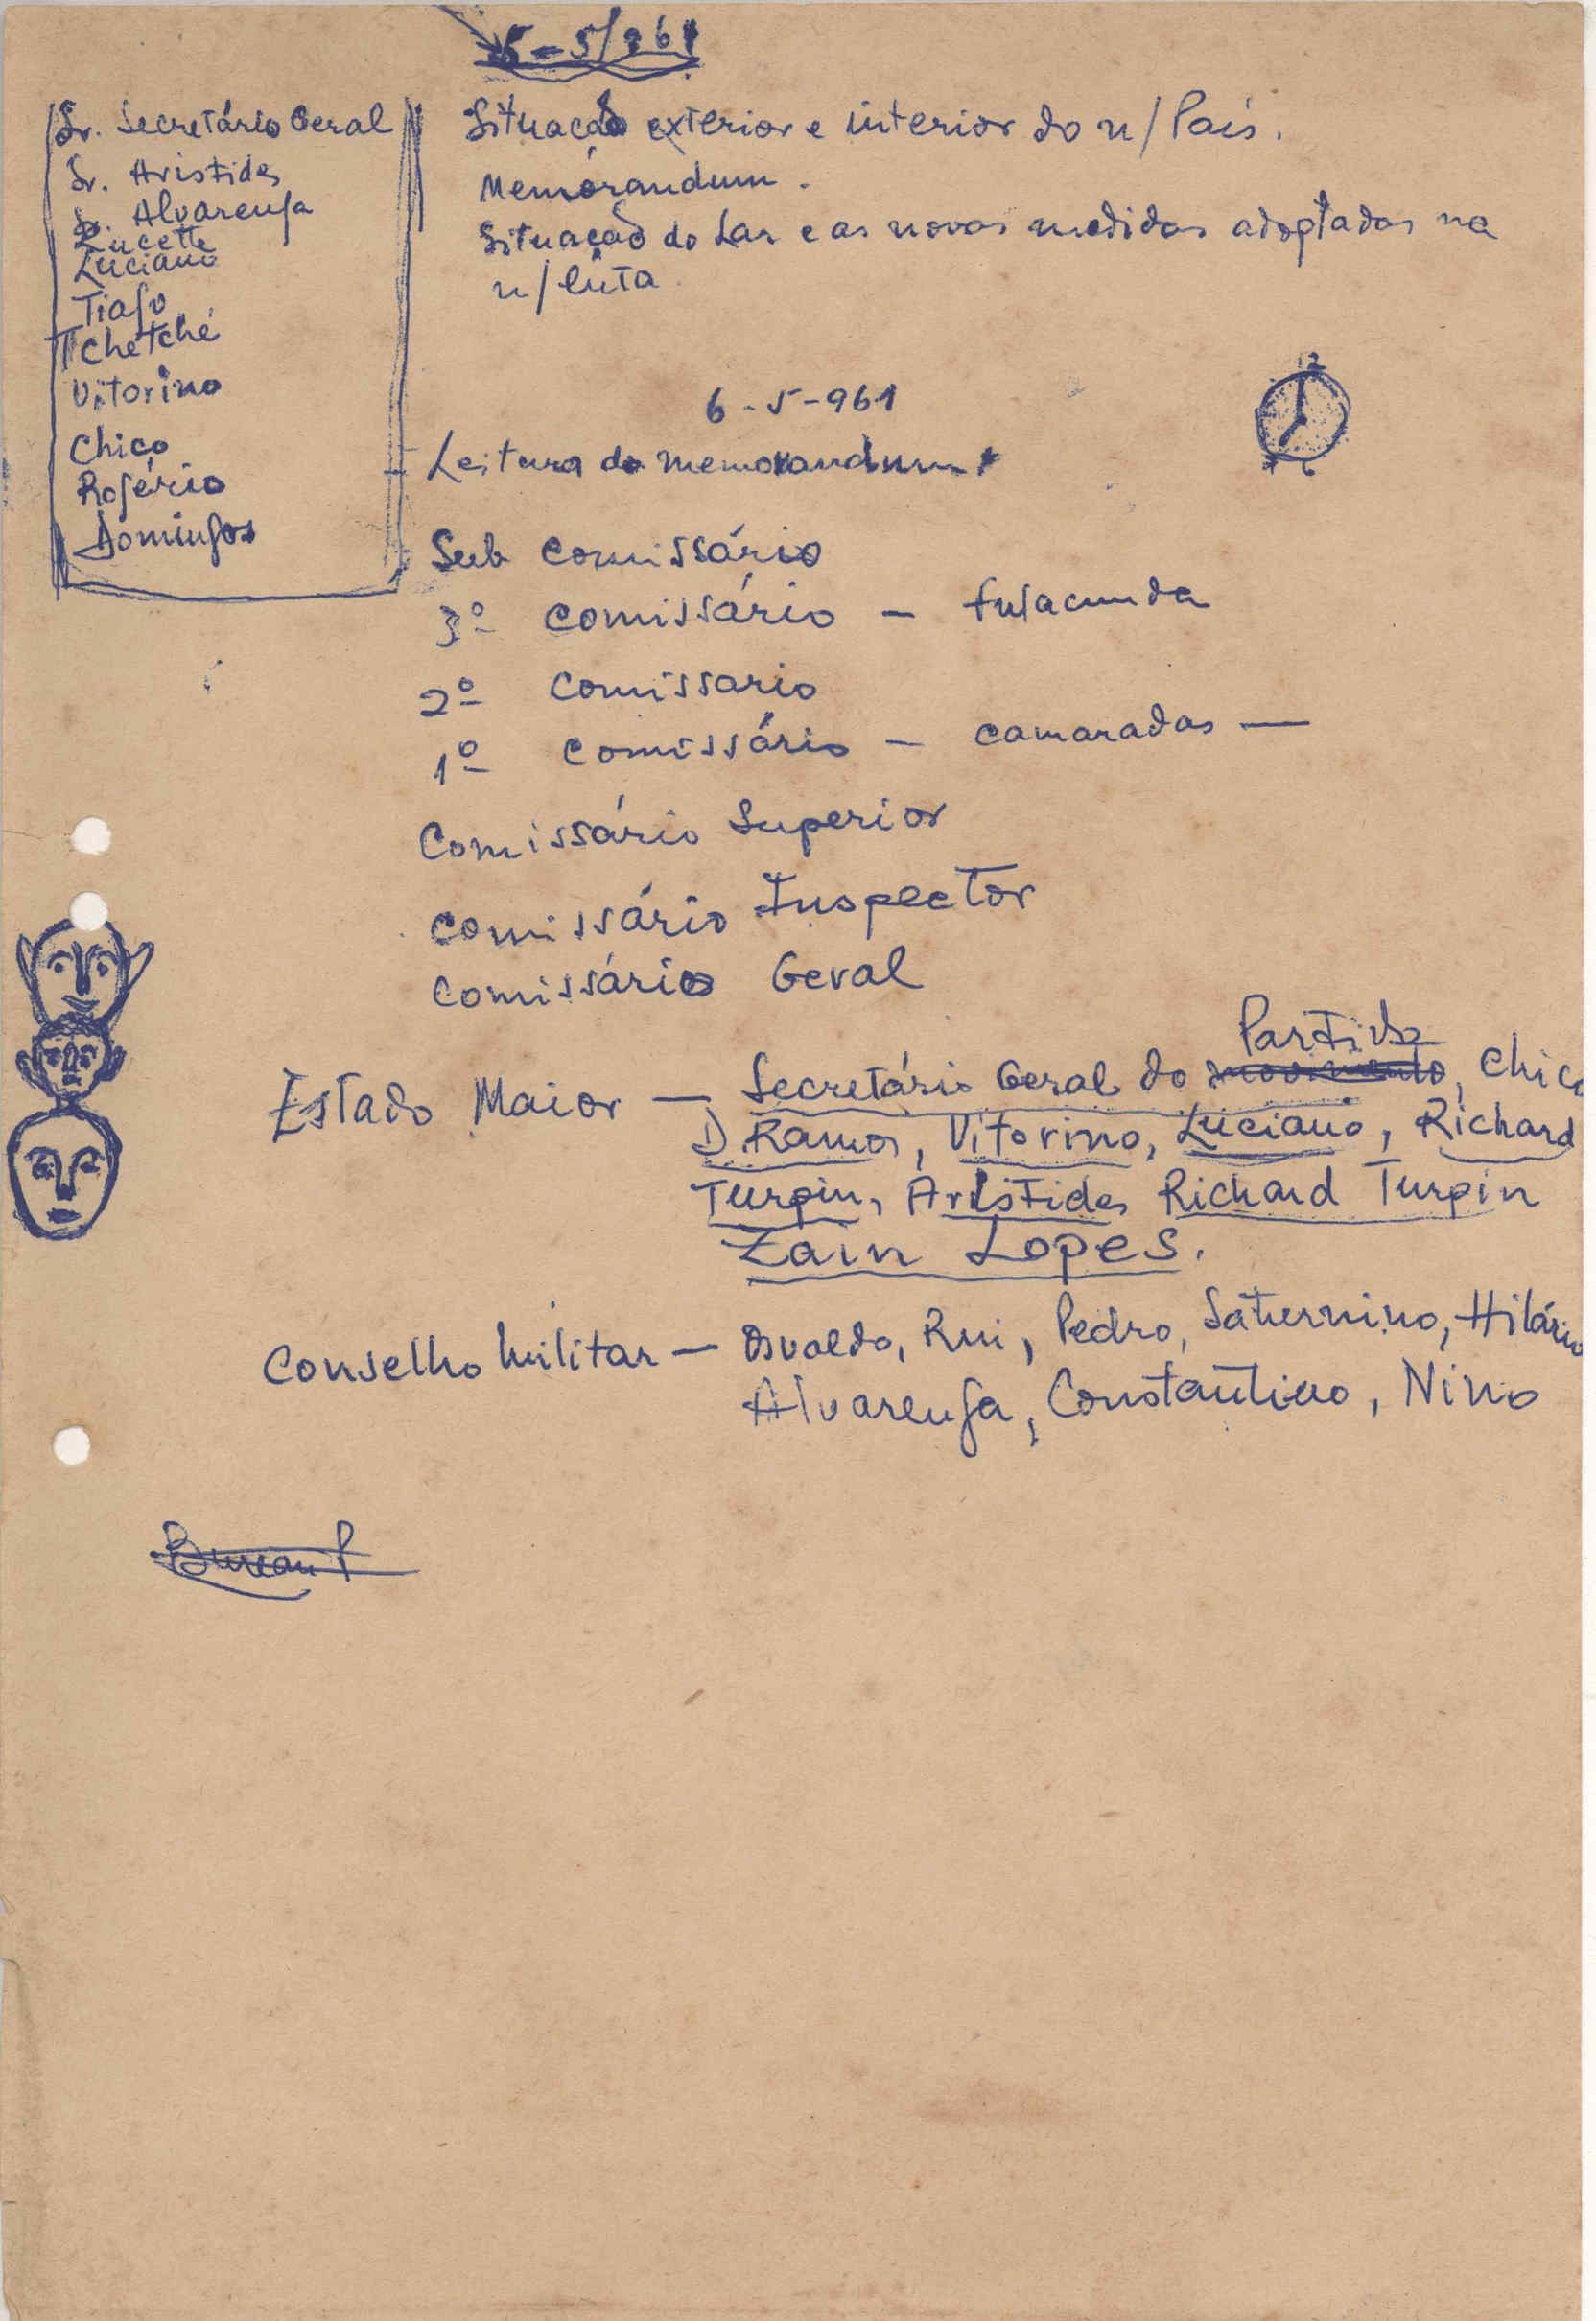 5-5/961
Sr. Secretário Geral
Sr. Aristides
Sr. Alvarenga
Lucette
Luciano
Tiago
Tchetché
Vitorino
Chico
Rogério
Domingos
Situação exterior e interior do n/ País.
Memórandum.
Situação do Lar e as novas medidas adoptadas na
n/ luta
12
6
6-5-961
- Leitura do memorandum
Sub comissário
3º comissário - fulacunda
2º comissario
1º comissário - camaradas —
Comissário Superior
comissário Inspector
comissário Geral
Partido
Estado Maior — Secretário Geral do movimento, Chico
D. Ramos, Vitorino, Luciano, Richard
Turpin, Aristides Richard Turpin
Zain Lopes.
Conselho Militar — Osvaldo, Rui, Pedro, Saturnino, Hilário
Alvarenga, Constantino, Nino
Bureau P